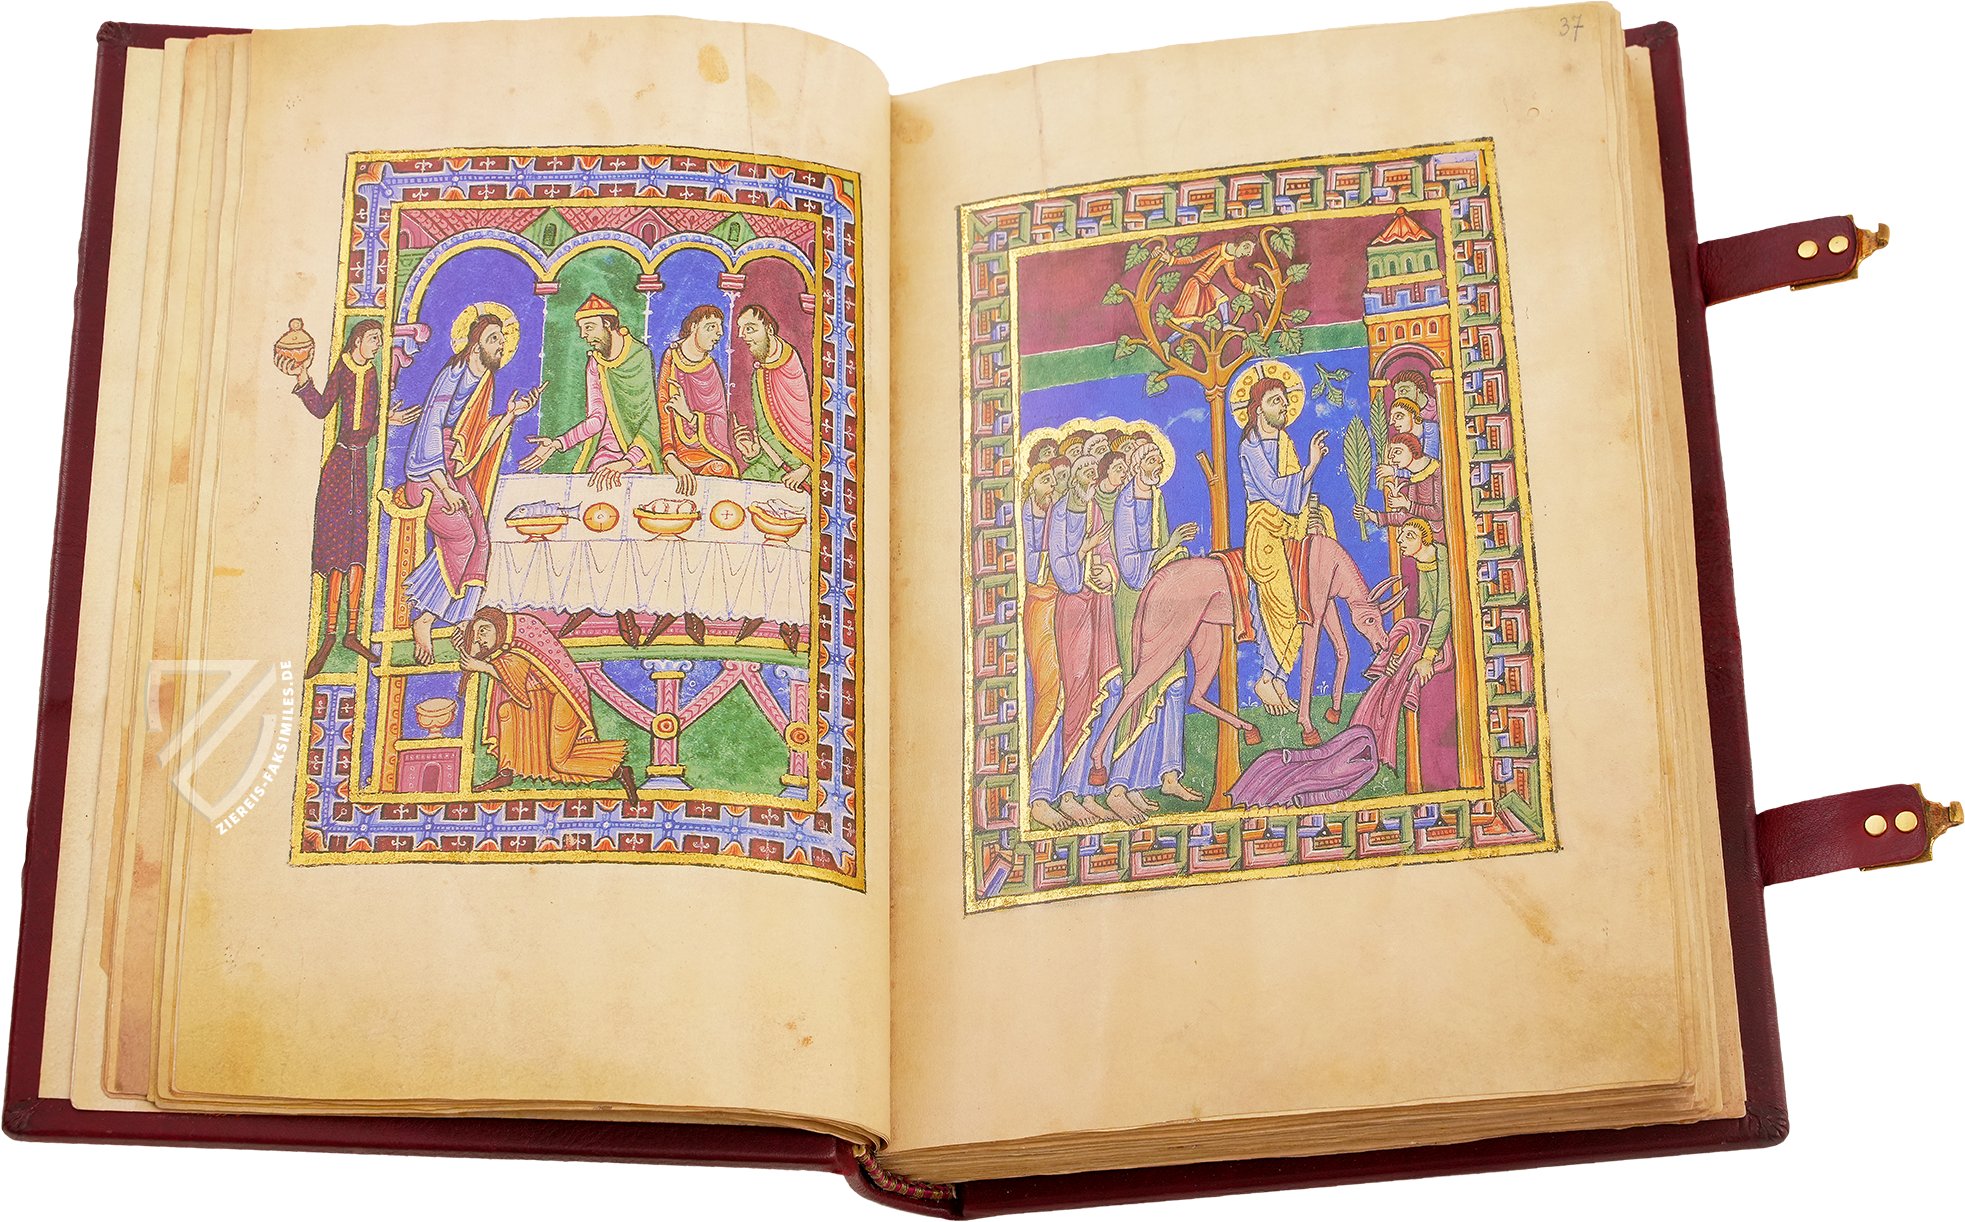 37
ZIEREIS-FAKSIMILES.DE